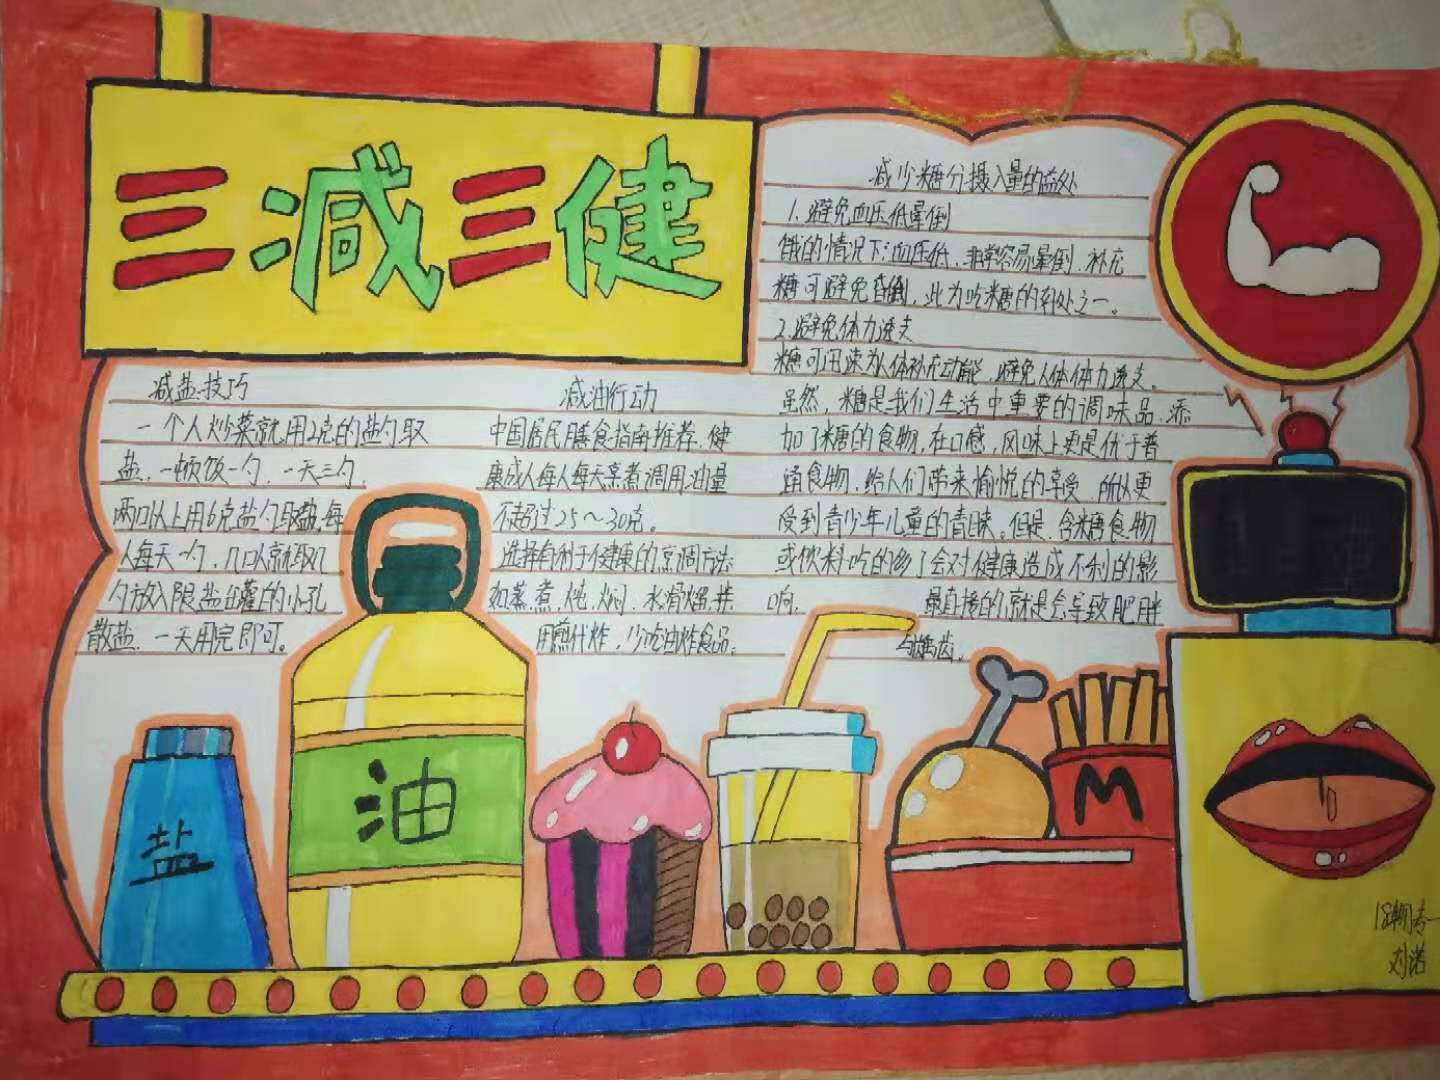 三减三健
减盐技巧
一个人炒菜就用2克的盐勺取
盐,一顿饭一勺,一天三勺
两口以上用6克盐勺取盐,每
人每天一勺,几口人就取几
勺放入限盐罐的小孔
散盐,一天用完即可。
减油行动
中国居民膳食指南推荐,健
康成人每人每天烹煮调用油量
不超过25~30克。
选择有利于健康的烹调方法
如蒸,煮,炖,焖,水滑熘,拌
用煎代炸,少吃油炸食品。
减少糖分摄入量的益处
1.避免血压低晕倒
饿的情况下:血压低,非常容易晕倒,补充
糖可避免倒,此为吃糖的好处之一。
2.避免体力透支
糖可迅速为人体补充动能,避免人体体力透支。
虽然,糖是我们生活中重要的调味品,添
加了糖的食物,在口感,风味上更是优于普
通食物,给人们带来愉悦的享受,所以更
受到青少年儿童的青睐。但是,含糖食物
或饮料吃的多了会对健康造成不利的影
响, 最直接的就是会导致肥胖
与龋齿。
盐
油
M
刘诺